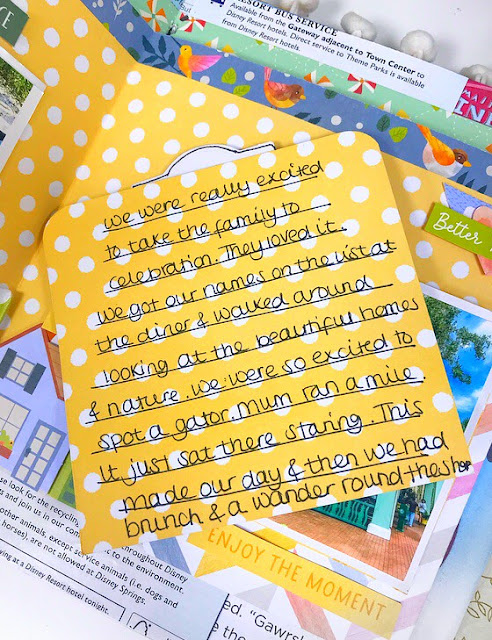 RESORT BUS SERVICE
Available from the Gateway adjacent to Town Center to
Disney Resort hotels. Direct service to Theme Parks is available
from Disney Resort hotels.
Better
we were really excited
to take the family to
celebration. They loved it.
we got our names on the list at
the diner & walked around
looking at the beautiful homes
& nature. we were so excited to
spot a gator. Mum ran a mile.
It just sat there staring. This
made our day & then we had
brunch & a wander round the
ENJOY THE MOMENT
se look for the recycling
and join us in our com
throughout Disney
to the environment.
other animals, except service animals (i.e. dogs and
horses), are not allowed at Disney Springs.
ying at a Disney Resort hotel tonight.
ed. "Gawrsh
the